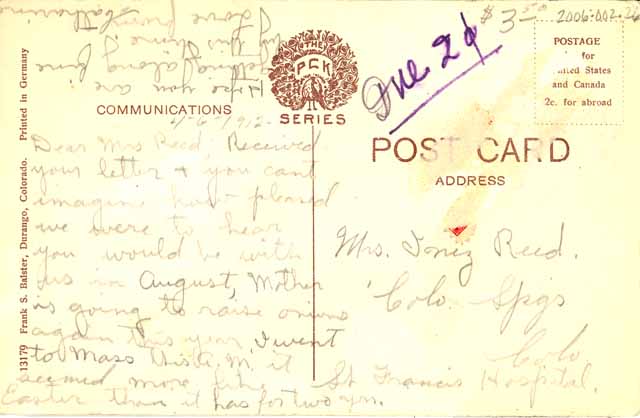 $3.50
2006:002.26
Due 2¢
POSTAGE
for
United States
and Canada
2c. for abroad
THE
PCK
SERIES
COMMUNICATIONS
POST CARD
ADDRESS
13179 Frank S. Balster, Durango, Colorado. Printed in Germany
4-6-1912
Dear Mrs Reed Received
your letter & you cant
imagine how pleased
we were to hear
you would be with
us in August, Mother
is going to raise onions
again this year, I went
to Mass this A.M. it
seemed more like
Easter than it has for two yrs.
Hope you are
getting along fine
by this time,
Love from
Mrs. Inez Reed.
Colo. Spgs
Colo
St Francis Hospital.